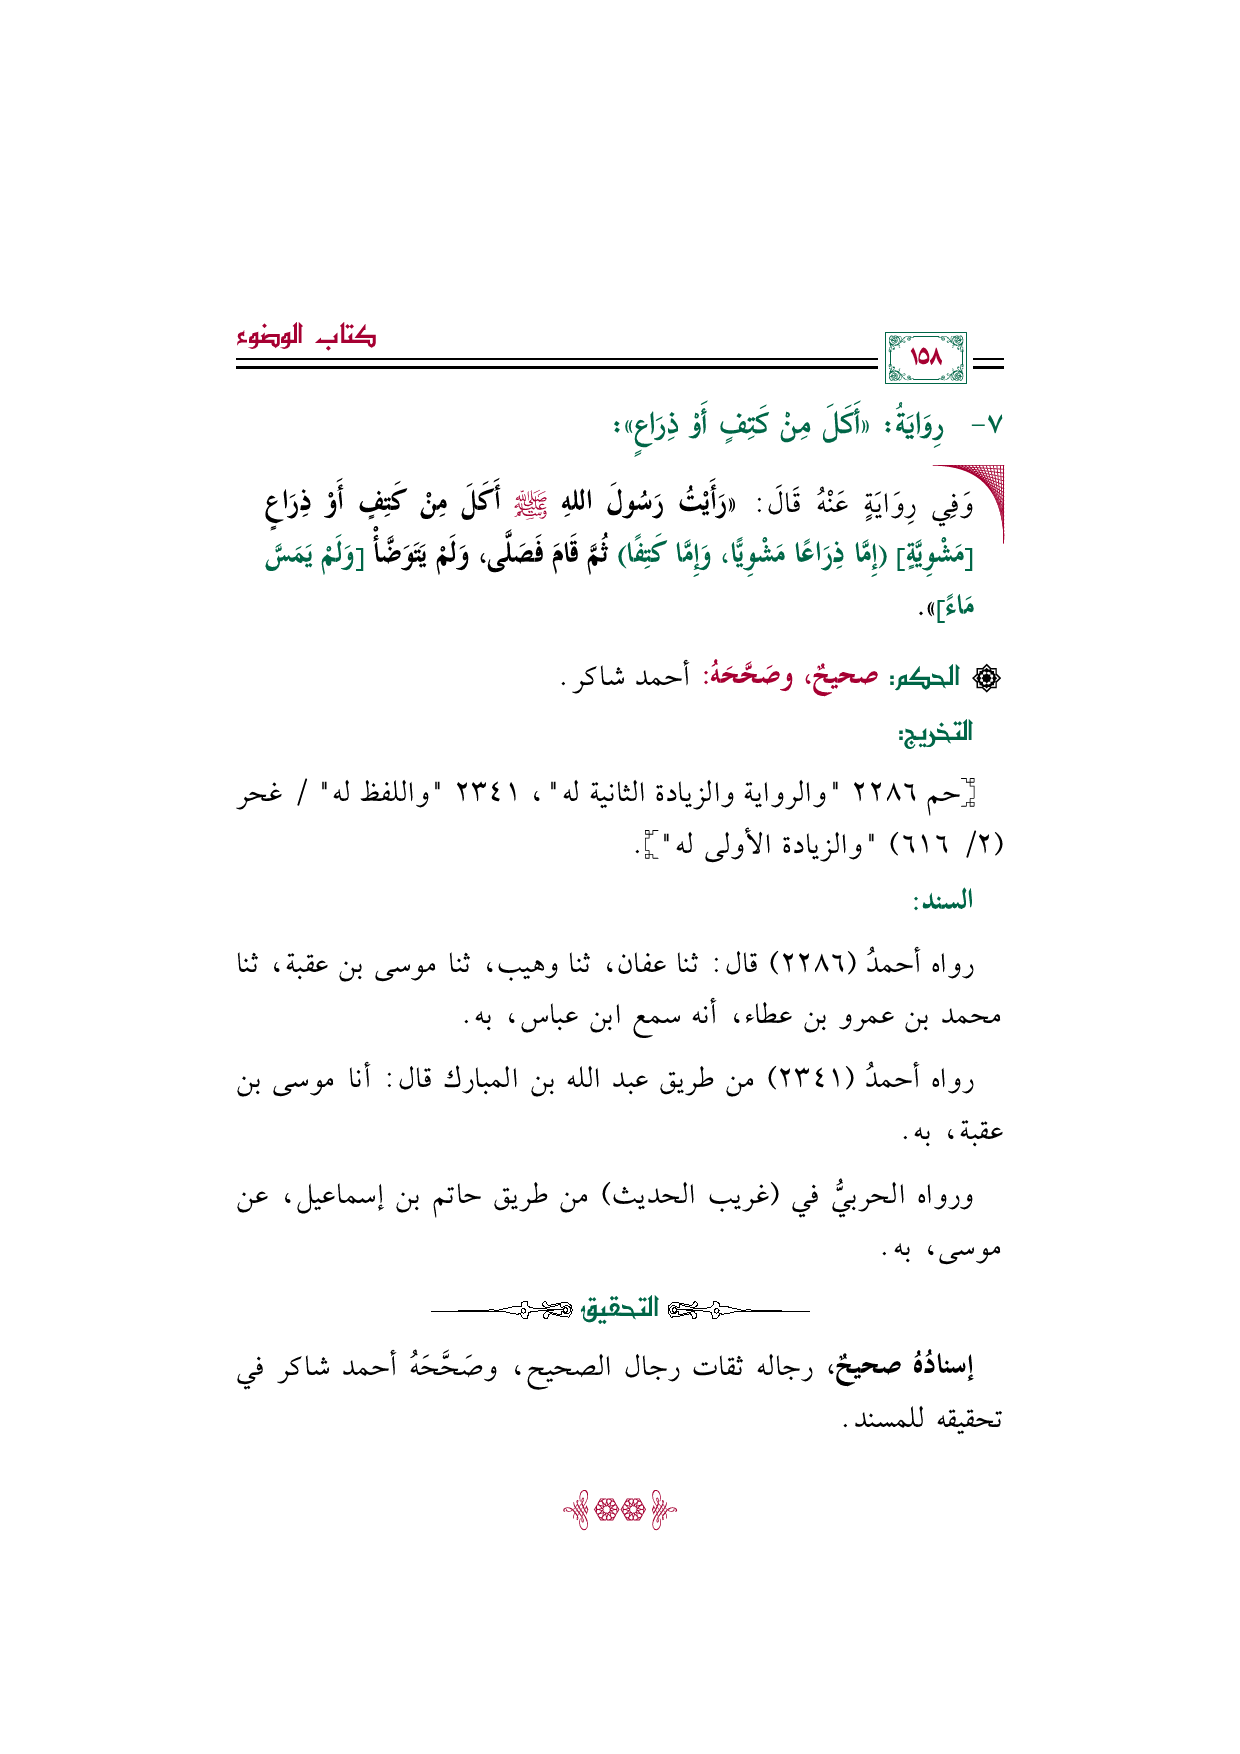 كتاب الوضوء
١٥٨
٧- رِوَايَةُ: «أَكَلَ مِنْ كَتِفٍ أَوْ ذِرَاعٍ»:
وَفِي رِوَايَةٍ عَنْهُ قَالَ: «رَأَيْتُ رَسُولَ اللهِ ﷺ أَكَلَ مِنْ كَتِفٍ أَوْ ذِرَاعٍ
[مَشْوِيَّةٍ] (إِمَّا ذِرَاعًا مَشْوِيًّا، وَإِمَّا كَتِفًا) ثُمَّ قَامَ فَصَلَّى، وَلَمْ يَتَوَضَّأْ [وَلَمْ يَمَسَّ
مَاءً]».
الحكم: صحيحٌ، وصَحَّحَهُ: أحمد شاكر.
التخريج:
[حم ٢٢٨٦ "والرواية والزيادة الثانية له"، ٢٣٤١ "واللفظ له" / غحر
(٢/ ٦١٦) "والزيادة الأولى له"].
السند:
رواه أحمدُ (٢٢٨٦) قال: ثنا عفان، ثنا وهيب، ثنا موسى بن عقبة، ثنا
محمد بن عمرو بن عطاء، أنه سمع ابن عباس، به.
رواه أحمدُ (٢٣٤١) من طريق عبد الله بن المبارك قال: أنا موسى بن
عقبة، به.
ورواه الحربيُّ في (غريب الحديث) من طريق حاتم بن إسماعيل، عن
موسى، به.
التحقيق
إسنادُهُ صحيحٌ، رجاله ثقات رجال الصحيح، وصَحَّحَهُ أحمد شاكر في
تحقيقه للمسند.